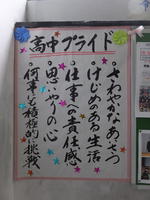 高中プライド
・さわやかなあいさつ
・けじめのある生活
・仕事への責任感
・思いやりの心
・何事にも積極的に挑戦